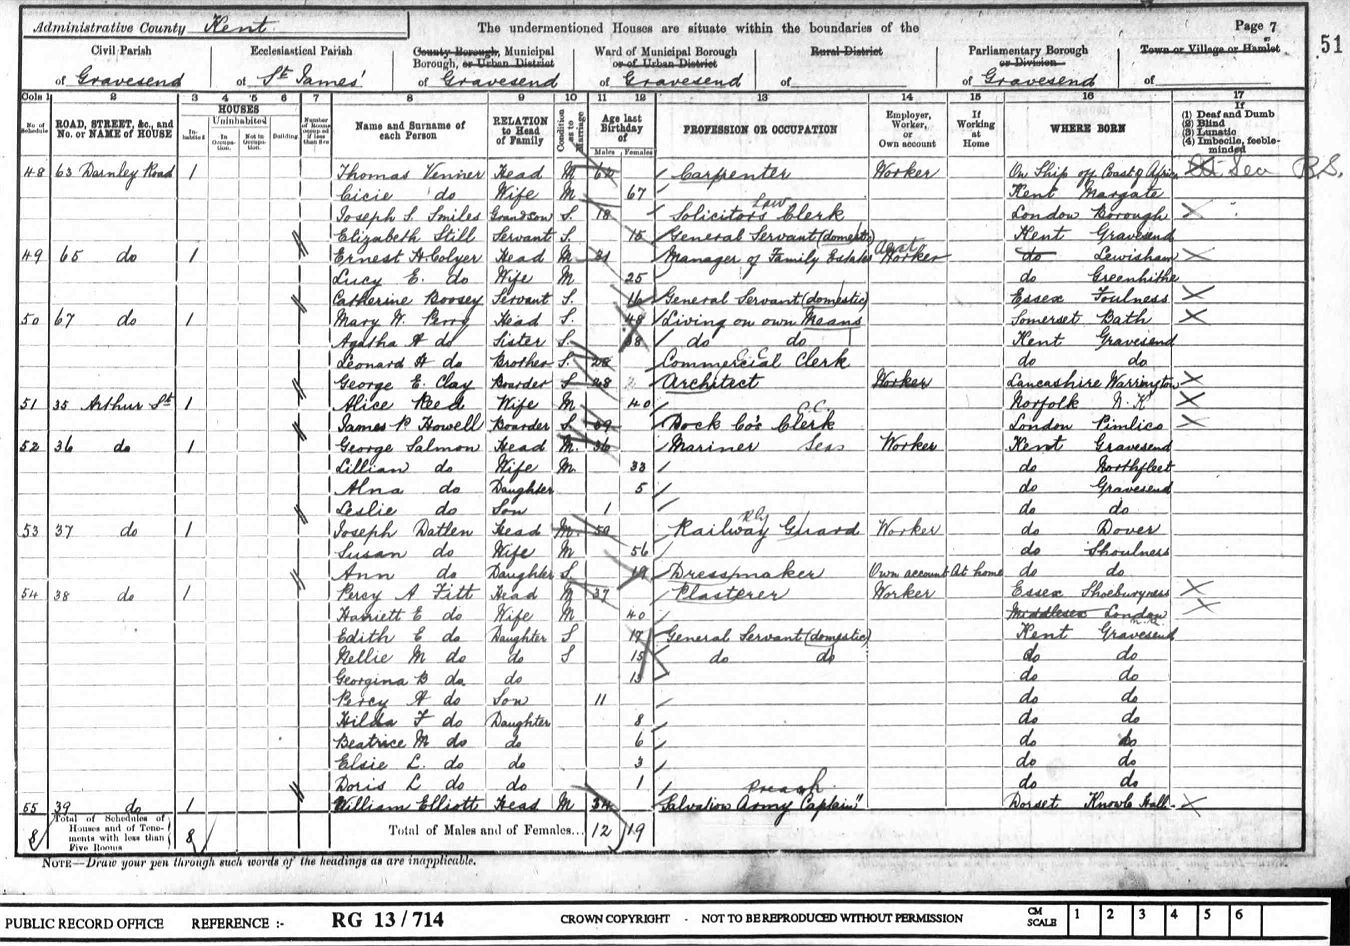 Administrative County Kent
The undermentioned Houses are situate within the boundaries of the
Page 7
51
Civil Parish of Gravesend
Ecclesiastical Parish of St James'
County Borough, Municipal Borough, or Urban District of Gravesend
Ward of Municipal Borough or of Urban District of Gravesend
Rural District of
Parliamentary Borough or Division of Gravesend
Town or Village or Hamlet of
Cols 1 2 3 4 5 6 7 8 9 10 11 12 13 14 15 16 17
No. of Schedule
ROAD, STREET, &c., and No. or NAME of HOUSE
HOUSES
Inhabited
Uninhabited
In Occupation.
Not in Occupation.
Building
Number of Rooms occupied if less than five
Name and Surname of each Person
RELATION to Head of Family
Condition as to Marriage
Age last Birthday of
Males Females
PROFESSION OR OCCUPATION
Employer, Worker, or Own account
If Working at Home
WHERE BORN
If (1) Deaf and Dumb (2) Blind (3) Lunatic (4) Imbecile, feeble-minded
48 63 Darnley Road 1 Thomas Venner Head M 62 Carpenter Worker On Ship off Coast of Africa At Sea B.S.
Cicie do Wife M 67 Kent Margate
Joseph S. Smiles Grandson S. 18 Solicitors Law Clerk London Borough
Elizabeth Still Servant S. 15 General Servant (domestic) Kent Gravesend
49 65 do 1 Ernest H Colyer Head M 31 Manager of Family Estates Worker do Lewisham
Lucy E. do Wife M 25 do Greenhithe
Catherine Boosey Servant S. 16 General Servant (domestic) Essex Foulness
50 67 do 1 Mary W. Perry Head S. 48 Living on own Means Somerset Bath
Agatha A do Sister S 38 do do Kent Gravesend
Leonard A do Brother S. 28 Commercial Clerk do do
George E. Clay Boarder S 28 Architect Worker Lancashire Warrington
51 35 Arthur St 1 Alice Reed Wife M 40 Norfolk N.K
James P Howell Boarder S. Dock Co's Clerk C.C. London Pimlico
52 36 do 1 George Salmon Head M. 36 Mariner Seas Worker Kent Gravesend
Lillian do Wife M. 33 do Northfleet
Alna do Daughter 5 do Gravesend
Leslie do Son 1 do do
53 37 do 1 Joseph Datlen Head M. 50 Railway Rly Guard Worker do Dover
Susan do Wife M 56 do Shoulness
Ann do Daughter S. 19 Dressmaker Own account At home do do
54 38 do 1 Percy A Fitt Head M 37 Plasterer Worker Essex Shoeburyness
Harriett E do Wife M 40 Middlesex London N.K.
Edith E do Daughter S 17 General Servant (domestic) Kent Gravesend
Nellie M do do S 15 do do do do
Georgina B do do 13 do do
Percy A do Son 11 do do
Hilda F do Daughter 8 do do
Beatrice M do do 6 do do
Elsie L. do do 3 do do
Doris L do do 1 do do
55 39 do 1 William Elliott Head M 34 "Salvation Army Captain" Preach Dorset Knowle Hall
8 Total of Schedules of Houses and of Tenements with less than Five Rooms 8
Total of Males and of Females... 12 19
NOTE—Draw your pen through such words of the headings as are inapplicable.
PUBLIC RECORD OFFICE REFERENCE :- RG 13 / 714 CROWN COPYRIGHT - NOT TO BE REPRODUCED WITHOUT PERMISSION CM SCALE 1 2 3 4 5 6